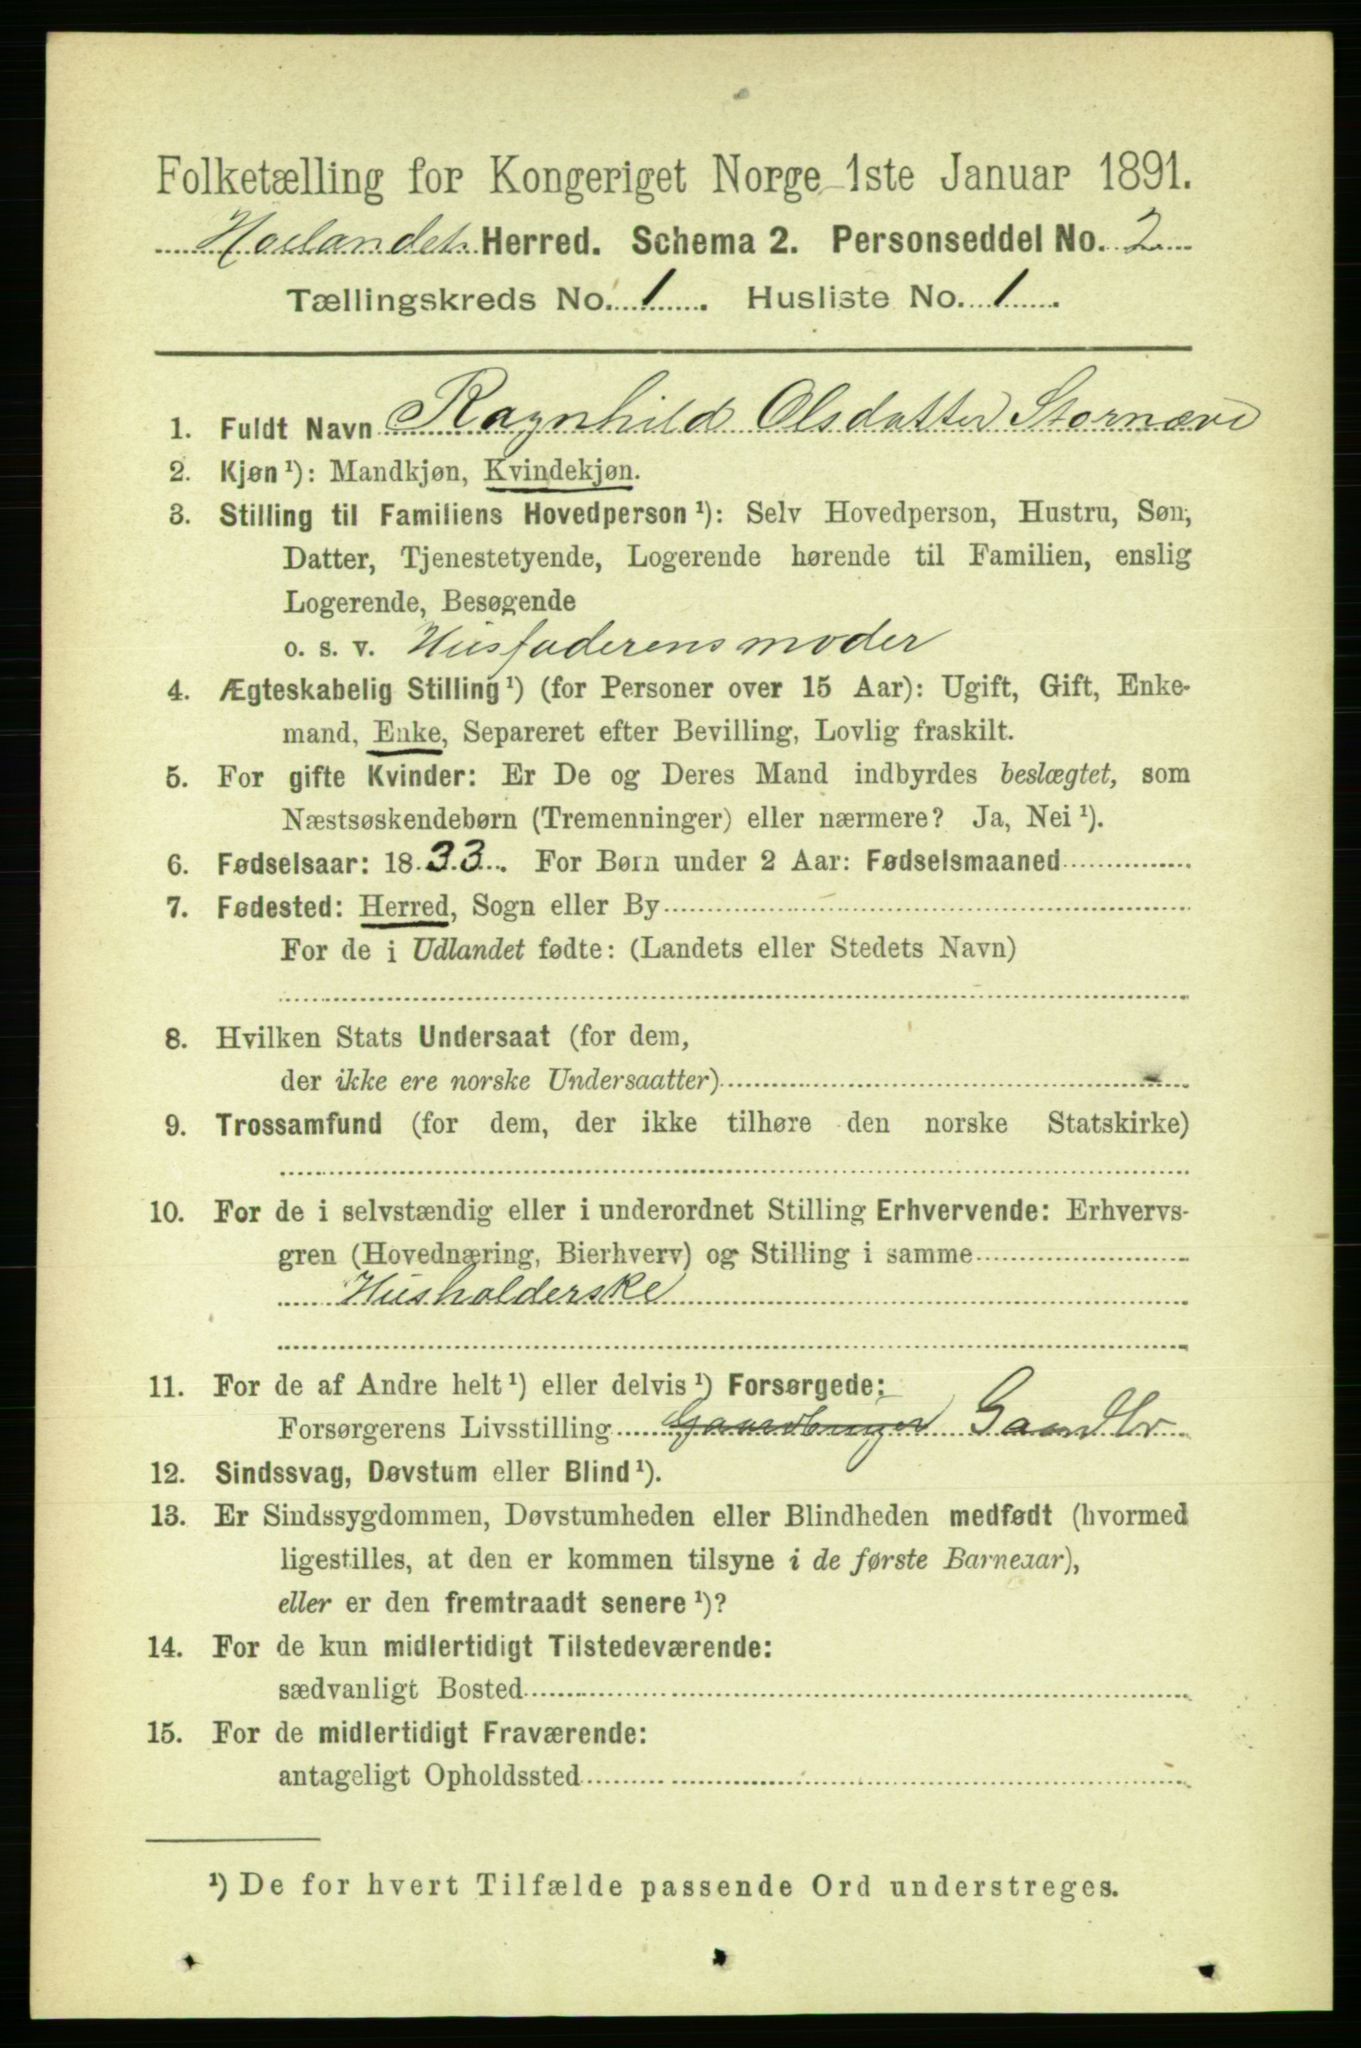 Folketælling for Kongeriget Norge 1ste Januar 1891.
Høilandets Herred. Schema 2. Personseddel No. 2
Tællingskreds No. 1. Husliste No. 1.
1. Fuldt Navn Ragnhild Olsdatter Stornøve
2. Kjøn¹): Mandkjøn, Kvindekjøn.
3. Stilling til Familiens Hovedperson¹): Selv Hovedperson, Hustru, Søn,
Datter, Tjenestetyende, Logerende hørende til Familien, enslig
Logerende, Besøgende
o. s. v. Husfaderens moder
4. Ægteskabelig Stilling¹) (for Personer over 15 Aar): Ugift, Gift, Enke-
mand, Enke, Separeret efter Bevilling, Lovlig fraskilt.
5. For gifte Kvinder: Er De og Deres Mand indbyrdes beslægtet, som
Næstsøskendebørn (Tremenninger) eller nærmere? Ja, Nei¹).
6. Fødselsaar: 1833. For Børn under 2 Aar: Fødselsmaaned
7. Fødested: Herred, Sogn eller By
For de i Udlandet fødte: (Landets eller Stedets Navn)
8. Hvilken Stats Undersaat (for dem,
der ikke ere norske Undersaatter)
9. Trossamfund (for dem, der ikke tilhøre den norske Statskirke)
10. For de i selvstændig eller i underordnet Stilling Erhvervende: Erhvervs-
gren (Hovednæring, Bierhverv) og Stilling i samme
Husholderske
11. For de af Andre helt¹) eller delvis¹) Forsørgede:
Forsørgerens Livsstilling Gaardbruger Gaardbr
12. Sindssvag, Døvstum eller Blind¹).
13. Er Sindssygdommen, Døvstumheden eller Blindheden medfødt (hvormed
ligestilles, at den er kommen tilsyne i de første Barneaar),
eller er den fremtraadt senere¹)?
14. For de kun midlertidigt Tilstedeværende:
sædvanligt Bosted
15. For de midlertidigt Fraværende:
antageligt Opholdssted
¹) De for hvert Tilfælde passende Ord understreges.